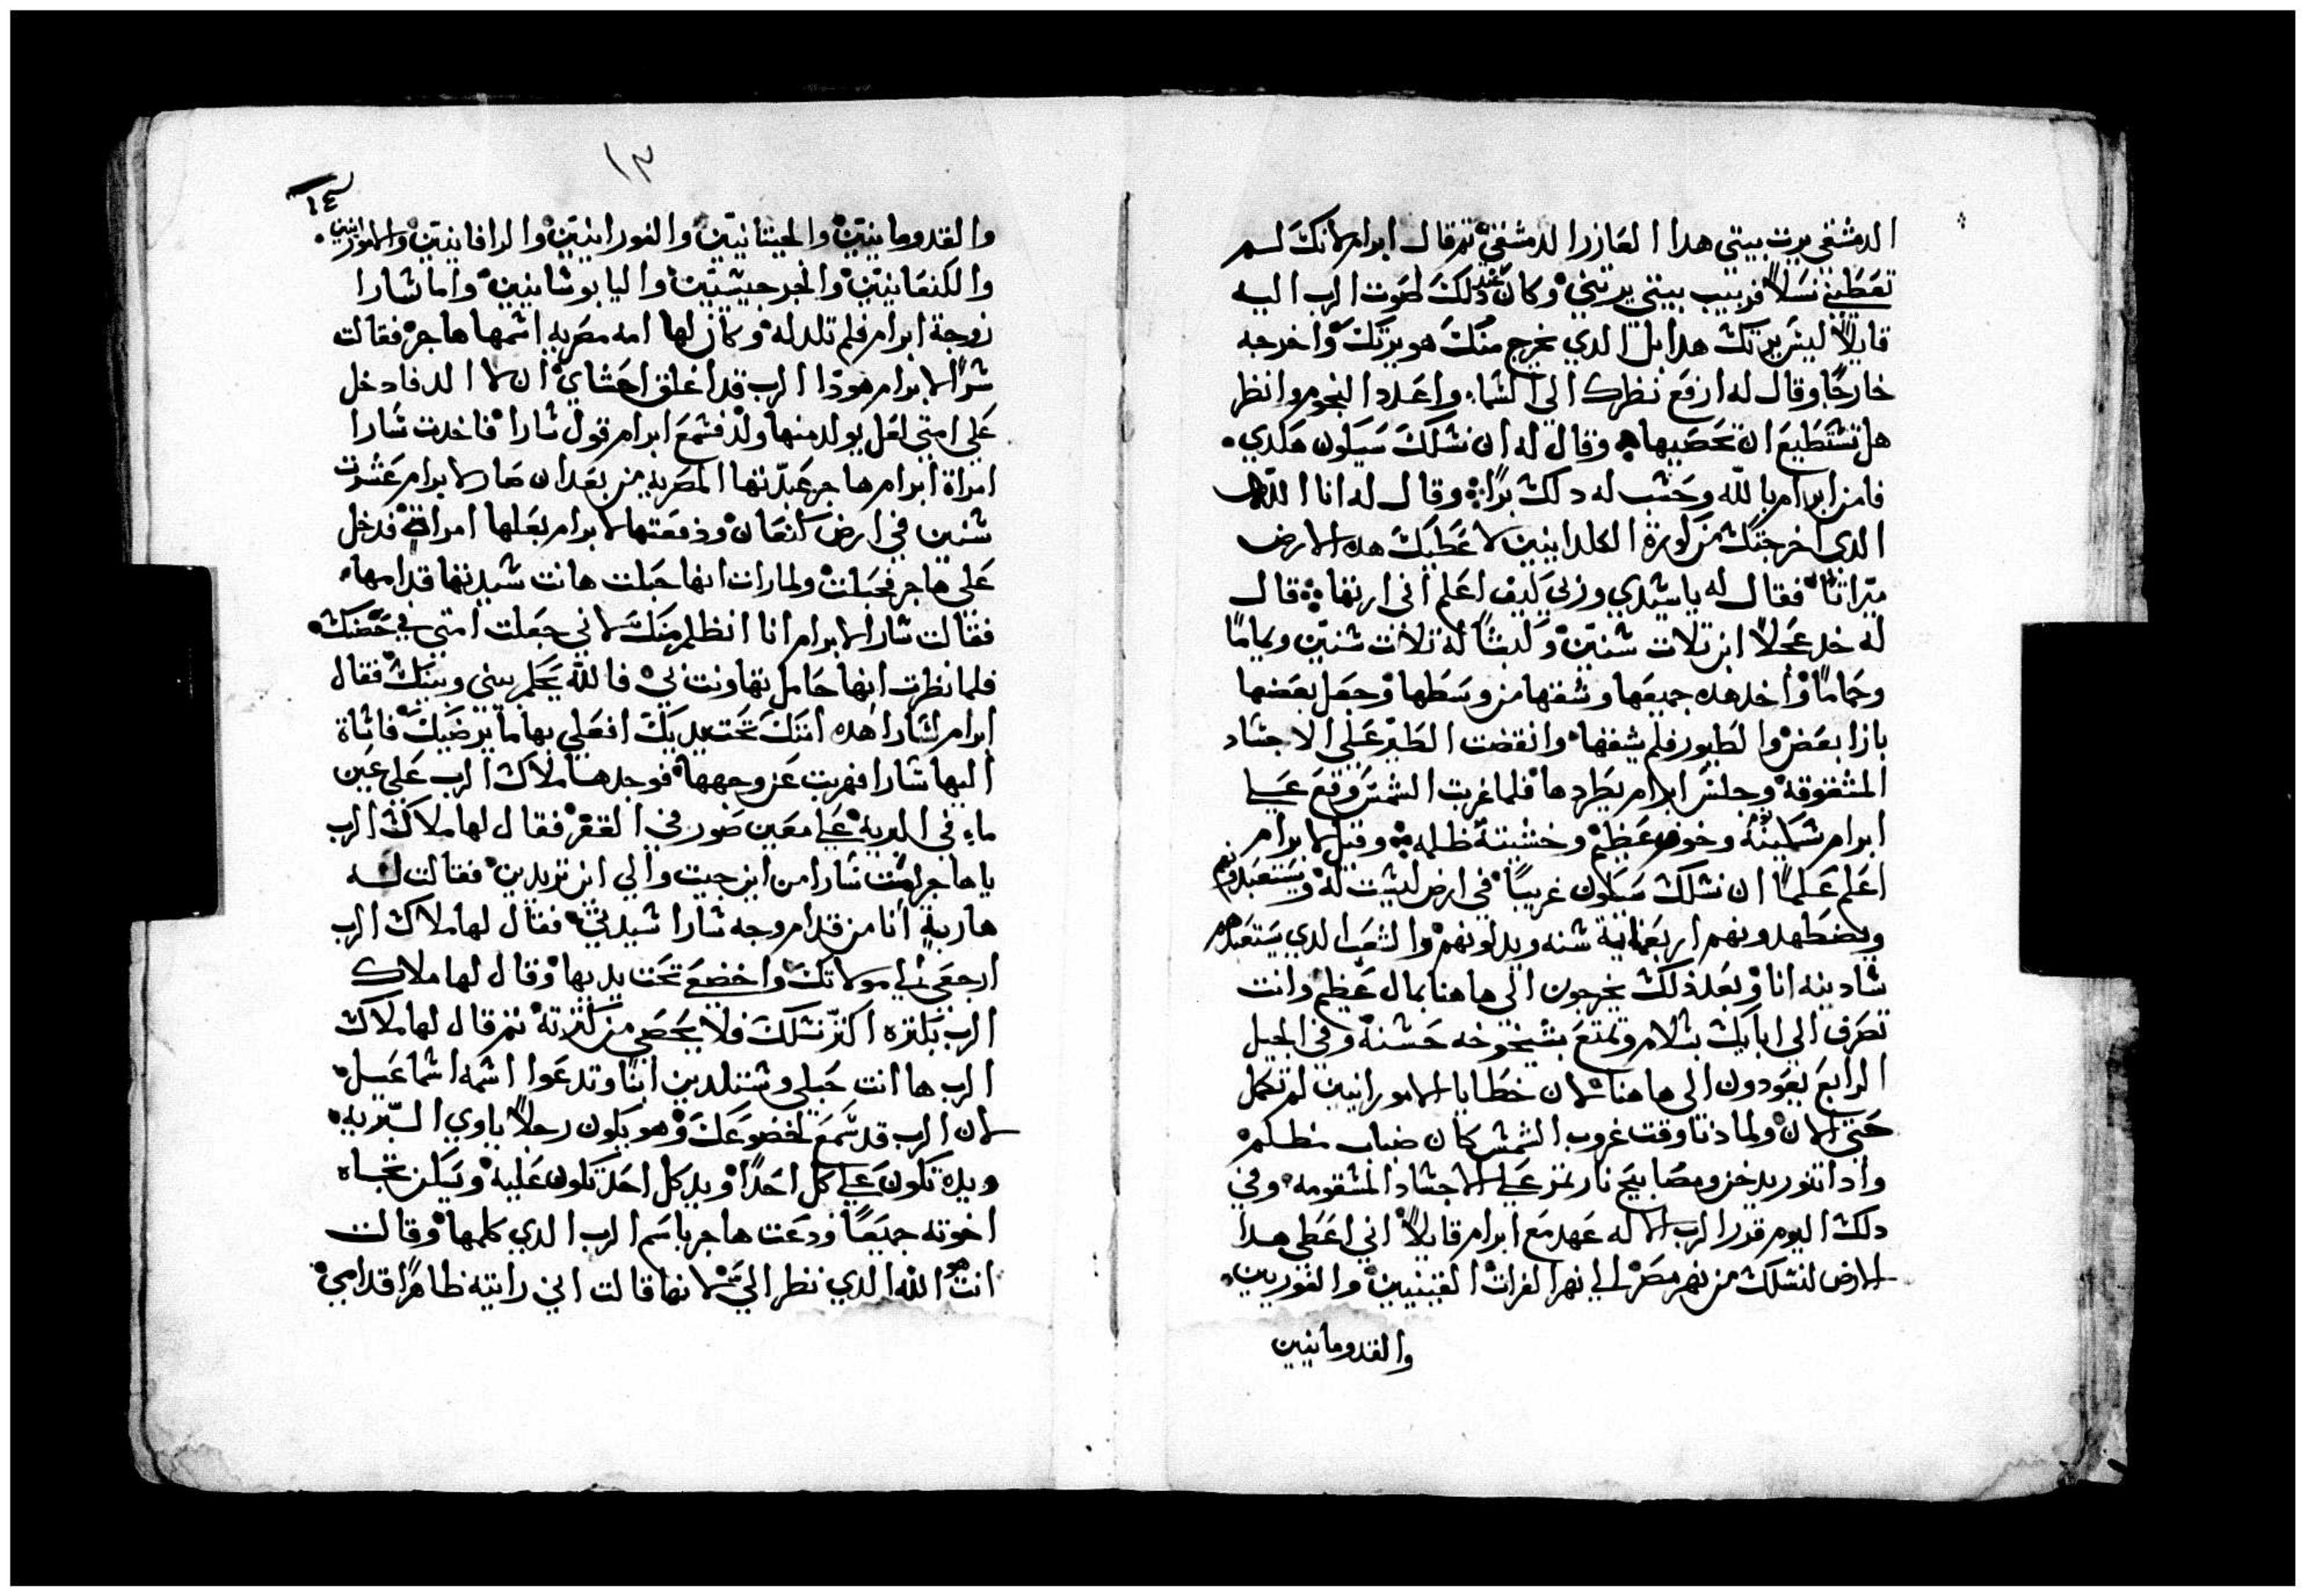 الدمشقي يرت بيتي هدا العازر الدمشقي تم قال ابرام لانك لم
تعطيني نسلاً فربيب بيتي يرتني وكان عند دلك صوت الرب اليه
قايلاً ليس يرتك هدا بل الدي يخرج منك هو يرتك واخرجه
خارجًا وقال له ارفع نظرك الي السماء واعدد النجوم وانظر
هل تستطيع ان تحصيها وقال له ان نسلك سيكون هكدي
فامن ابرام بالله وحسب له دلك برًا وقال له انا الله
الدي اخرجتك من كورة الكلدانيين لاعطيك هده الارض
ميراتًا فقال له ياسيدي وربي كيف اعلم اني ارتها قال
له خد عجلاً ابن تلات سنين وكبشًا له تلات سنين ويمامًا
وحمامًا واخد هده جميعها وشقها من وسطها وجعل بعضها
بازا بعض والطيور فلم يشقها وانقضت الطير علي الاجساد
المشقوقه وجلس ابرام يطردها فلما غربت الشمس وقع علي
ابرام وخوف عظيم وخشيته ظلمه وقيل لابرام
اعلم علمًا ان نسلك سيكون غريبًا في ارض ليست له ويستعبدونهم
ويضطهدونهم اربعماية سنه ويدلونهم والشعب الدي يستعبدهم
سادينه انا وبعد ذلك يخرجون الي هاهنا بمال عظيم وانت
تصرف الي ابايك بسلام وتمتع بشيخوخه حسنه وفي الجيل
الرابع يعودون الي هاهنا لان خطايا الامورانيين لم تكمل
حتي الان ولما دنا وقت غروب الشمس كان ضباب مظلم
وادا تنور يدخن ومصابيح نار تمر علي الاجساد المشقومه وفي
دلك اليوم قرر الرب الاله عهد مع ابرام قايلاً اني اعطي هدا
الارض لنسلك من نهر مصر الي نهر الفرات القينيين والقنوريين
والقدومانيين
١٣
١٤
والقدومانيين والحيتانيين والفورانيين والرافانيين والامورانيين
والكنعانيين والجرجيسيين واليابوسانيين واما سارا
زوجة ابرام فلم تلد له وكان لها امه مصريه اسمها هاجر فقالت
سرًا لابرام هودا الرب قد اغلق احشاي ان لا الد فادخل
علي امتي لعل يولد منها ولد فسمع ابرام قول سارا فاخدت سارا
امراة ابرام هاجر عبدتها المصريه من بعد ان صار لابرام عشرت
سنين في ارض كنعان ودفعتها لابرام بعلها امراة فدخل
علي هاجر فحبلت ولما رات انها حبلت هانت سيدتها قدامها
فقالت سارا لابرام انا انظلم منك لاني جعلت امتي في حضنك
فلما نظرت انها حامل تهاونت بي فالله يحكم بيني وبينك فقال
ابرام لسارا هده امتك تحت يديك افعلي بها ما يرضيك فاساة
اليها سارا فهربت عن وجهها فوجدها ملاك الرب علي عين
ماء في البريه علي معين صور في القفر فقال لها ملاك الرب
ياهاجر امت سارا من اين جيت والي اين تريدين فقالت له
هاربة انا من قدام وجه سارا سيدتي فقال لها ملاك الرب
ارجعي الي مولاتك واخضع تحت يديها وقال لها ملاك
الرب بكتره اكتر نسلك ولا يحصي من كترته تم قال لها ملاك
الرب ها انت حبلي وستلدين ابنًا وتدعوا اسمه اسماعيل
لان الرب قد سمع لخضوعك وهو يكون رجلاً ياوي البريه
ويده تكون علي كل احدًا ويد كل احد تكون عليه ويسكن تجاه
اخوته جميعًا ودعت هاجر باسم الرب الدي كلمها وقالت
انت هو الله الدي نظر الي لانها قالت اني رايته ظاهرًا قدامي